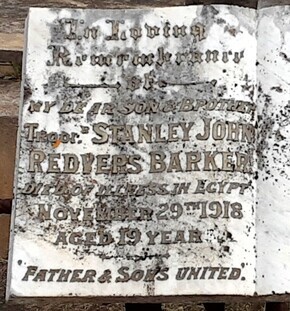 In Loving
Remembrance
of
MY DEAR SON & BROTHER
Troopr STANLEY JOHN
REDVERS BARKER
DIED OF ILLNESS IN EGYPT
NOVEMBER 29TH 1918
AGED 19 YEAR
FATHER & SONS UNITED.